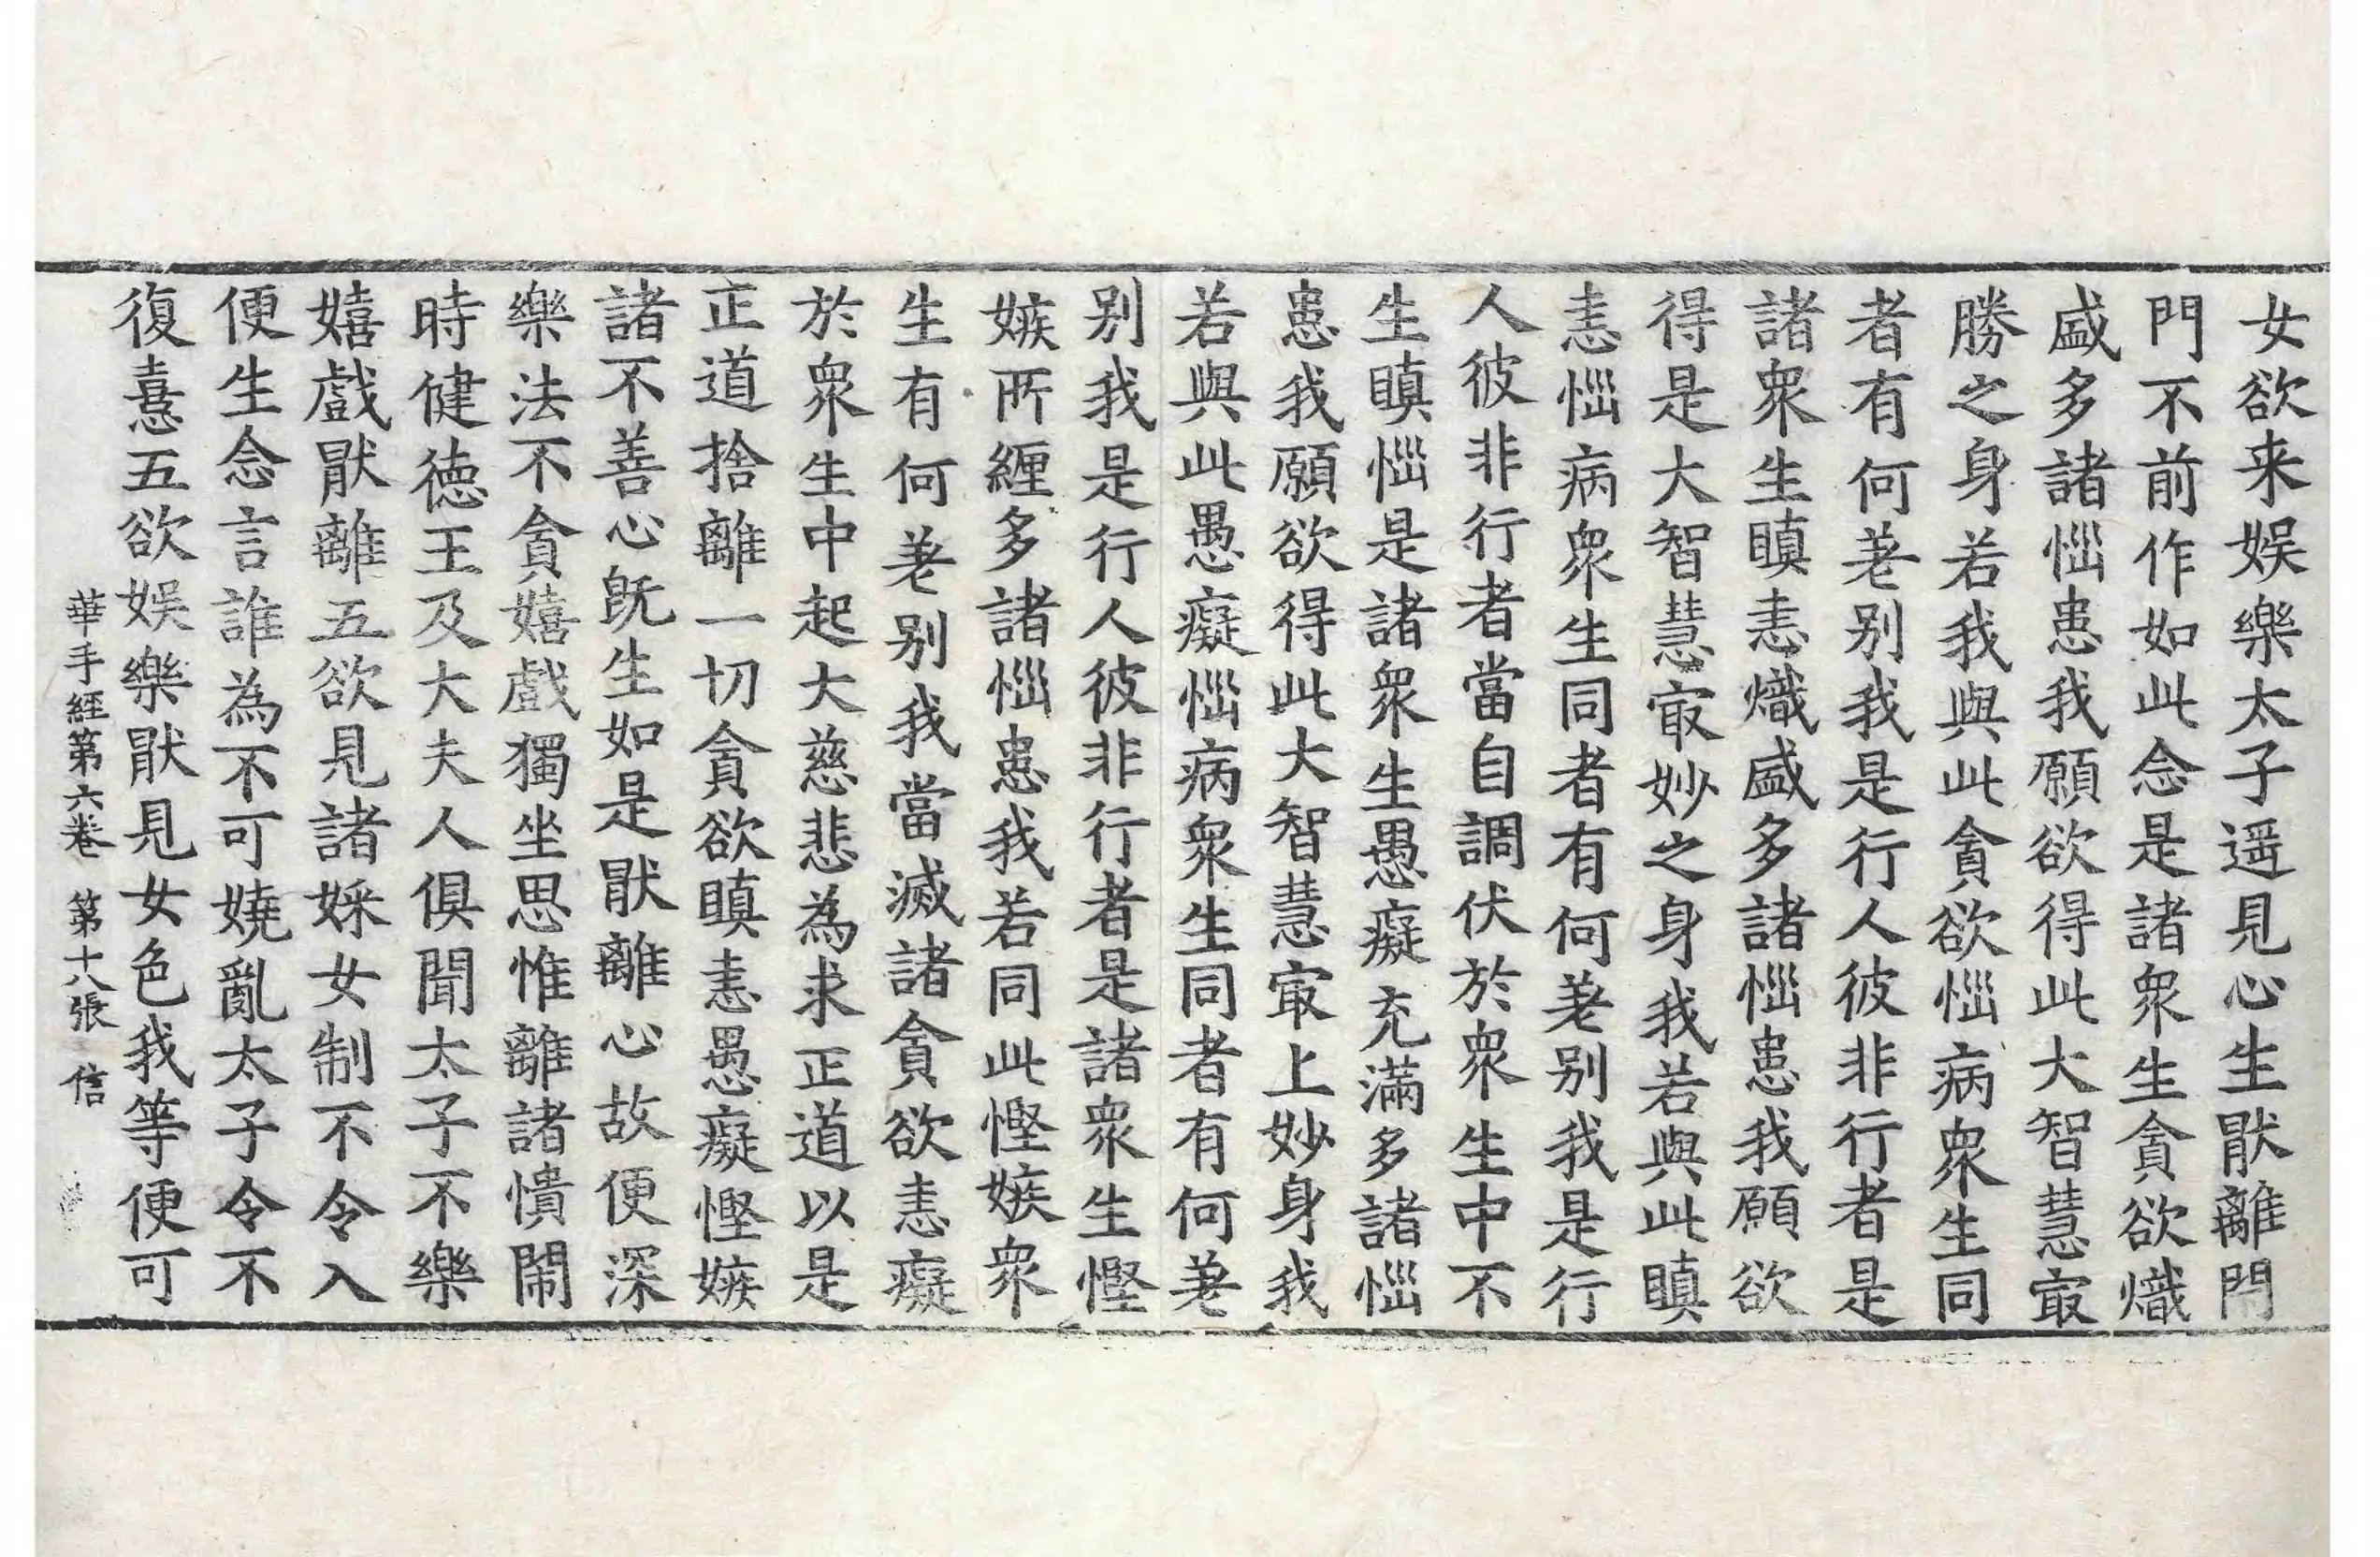 女欲来娱樂太子遥見心生猒離閂
門不前作如此念是諸衆生貪欲熾
盛多諸惱患我願欲得此大智慧㝡
勝之身若我與此貪欲惱病衆生同
者有何差别我是行人彼非行者是
諸衆生瞋恚熾盛多諸惱患我願欲
得是大智慧㝡妙之身我若與此瞋
恚惱病衆生同者有何差别我是行
人彼非行者當自調伏於衆生中不
生瞋惱是諸衆生愚癡充滿多諸惱
患我願欲得此大智慧㝡上妙身我
若與此愚癡惱病衆生同者有何差
别我是行人彼非行者是諸衆生慳
嫉所纒多諸惱患我若同此慳嫉衆
生有何差别我當滅諸貪欲恚癡
於衆生中起大慈悲為求正道以是
正道捨離一切貪欲瞋恚愚癡慳嫉
諸不善心旣生如是猒離心故便深
樂法不貪嬉戲獨坐思惟離諸憒閙
時健徳王及大夫人俱聞太子不樂
嬉戲猒離五欲見諸婇女制不令入
便生念言誰為不可嬈亂太子令不
復憙五欲娱樂猒見女色我等便可
華手經第六卷 第十八張 信